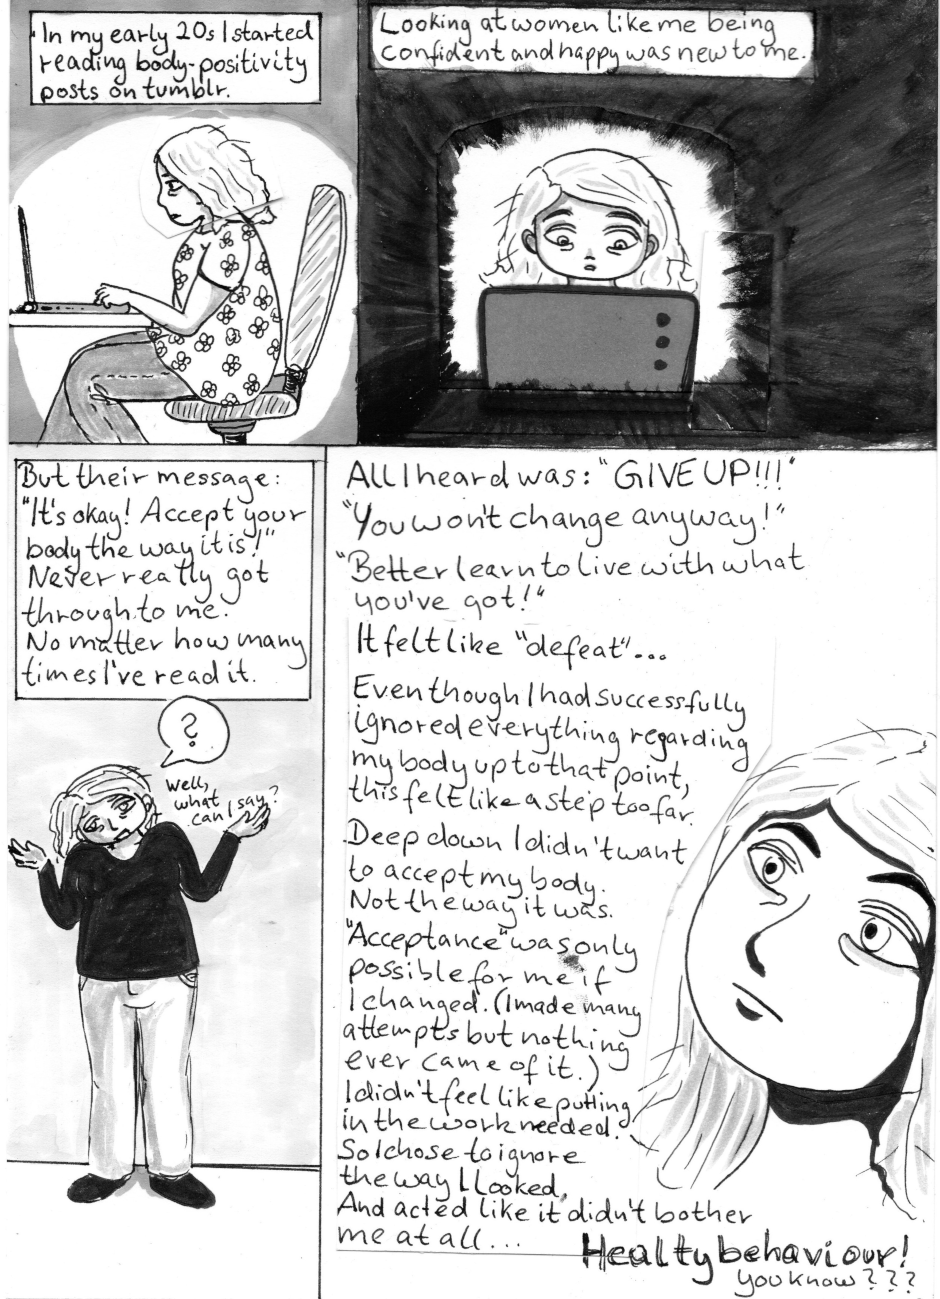 In my early 20s I started
reading body-positivity
posts on tumblr.
Looking at women like me being
confident and happy was new to me.
But their message:
"It's okay! Accept your
body the way it is!"
Never really got
through to me.
No matter how many
times I've read it.
?
Well,
what
can I say?
All I heard was: "GIVE UP!!!"
"You won't change anyway!"
"Better learn to live with what
you've got!"
It felt like "defeat"...
Even though I had successfully
ignored everything regarding
my body up to that point,
this felt like a step too far.
Deep down I didn't want
to accept my body.
Not the way it was.
"Acceptance" was only
possible for me if
I changed. (I made many
attempts but nothing
ever came of it.)
I didn't feel like putting
in the work needed.
So I chose to ignore
the way I looked.
And acted like it didn't bother
me at all...
Healty behaviour!
you know???